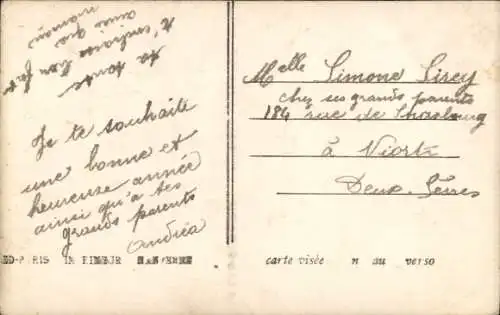 Je te souhaite
une bonne et
heureuse année
ainsi qu'a tes
grands parents
Andréa
ta tante
t'embrasse bien fort
ainsi que
maman
Melle Simone Lisey
chez ses grands parents
184 rue de Strasbourg
à Niort
Deux-Sèvres
ED-PARIS
carte visée n au verso